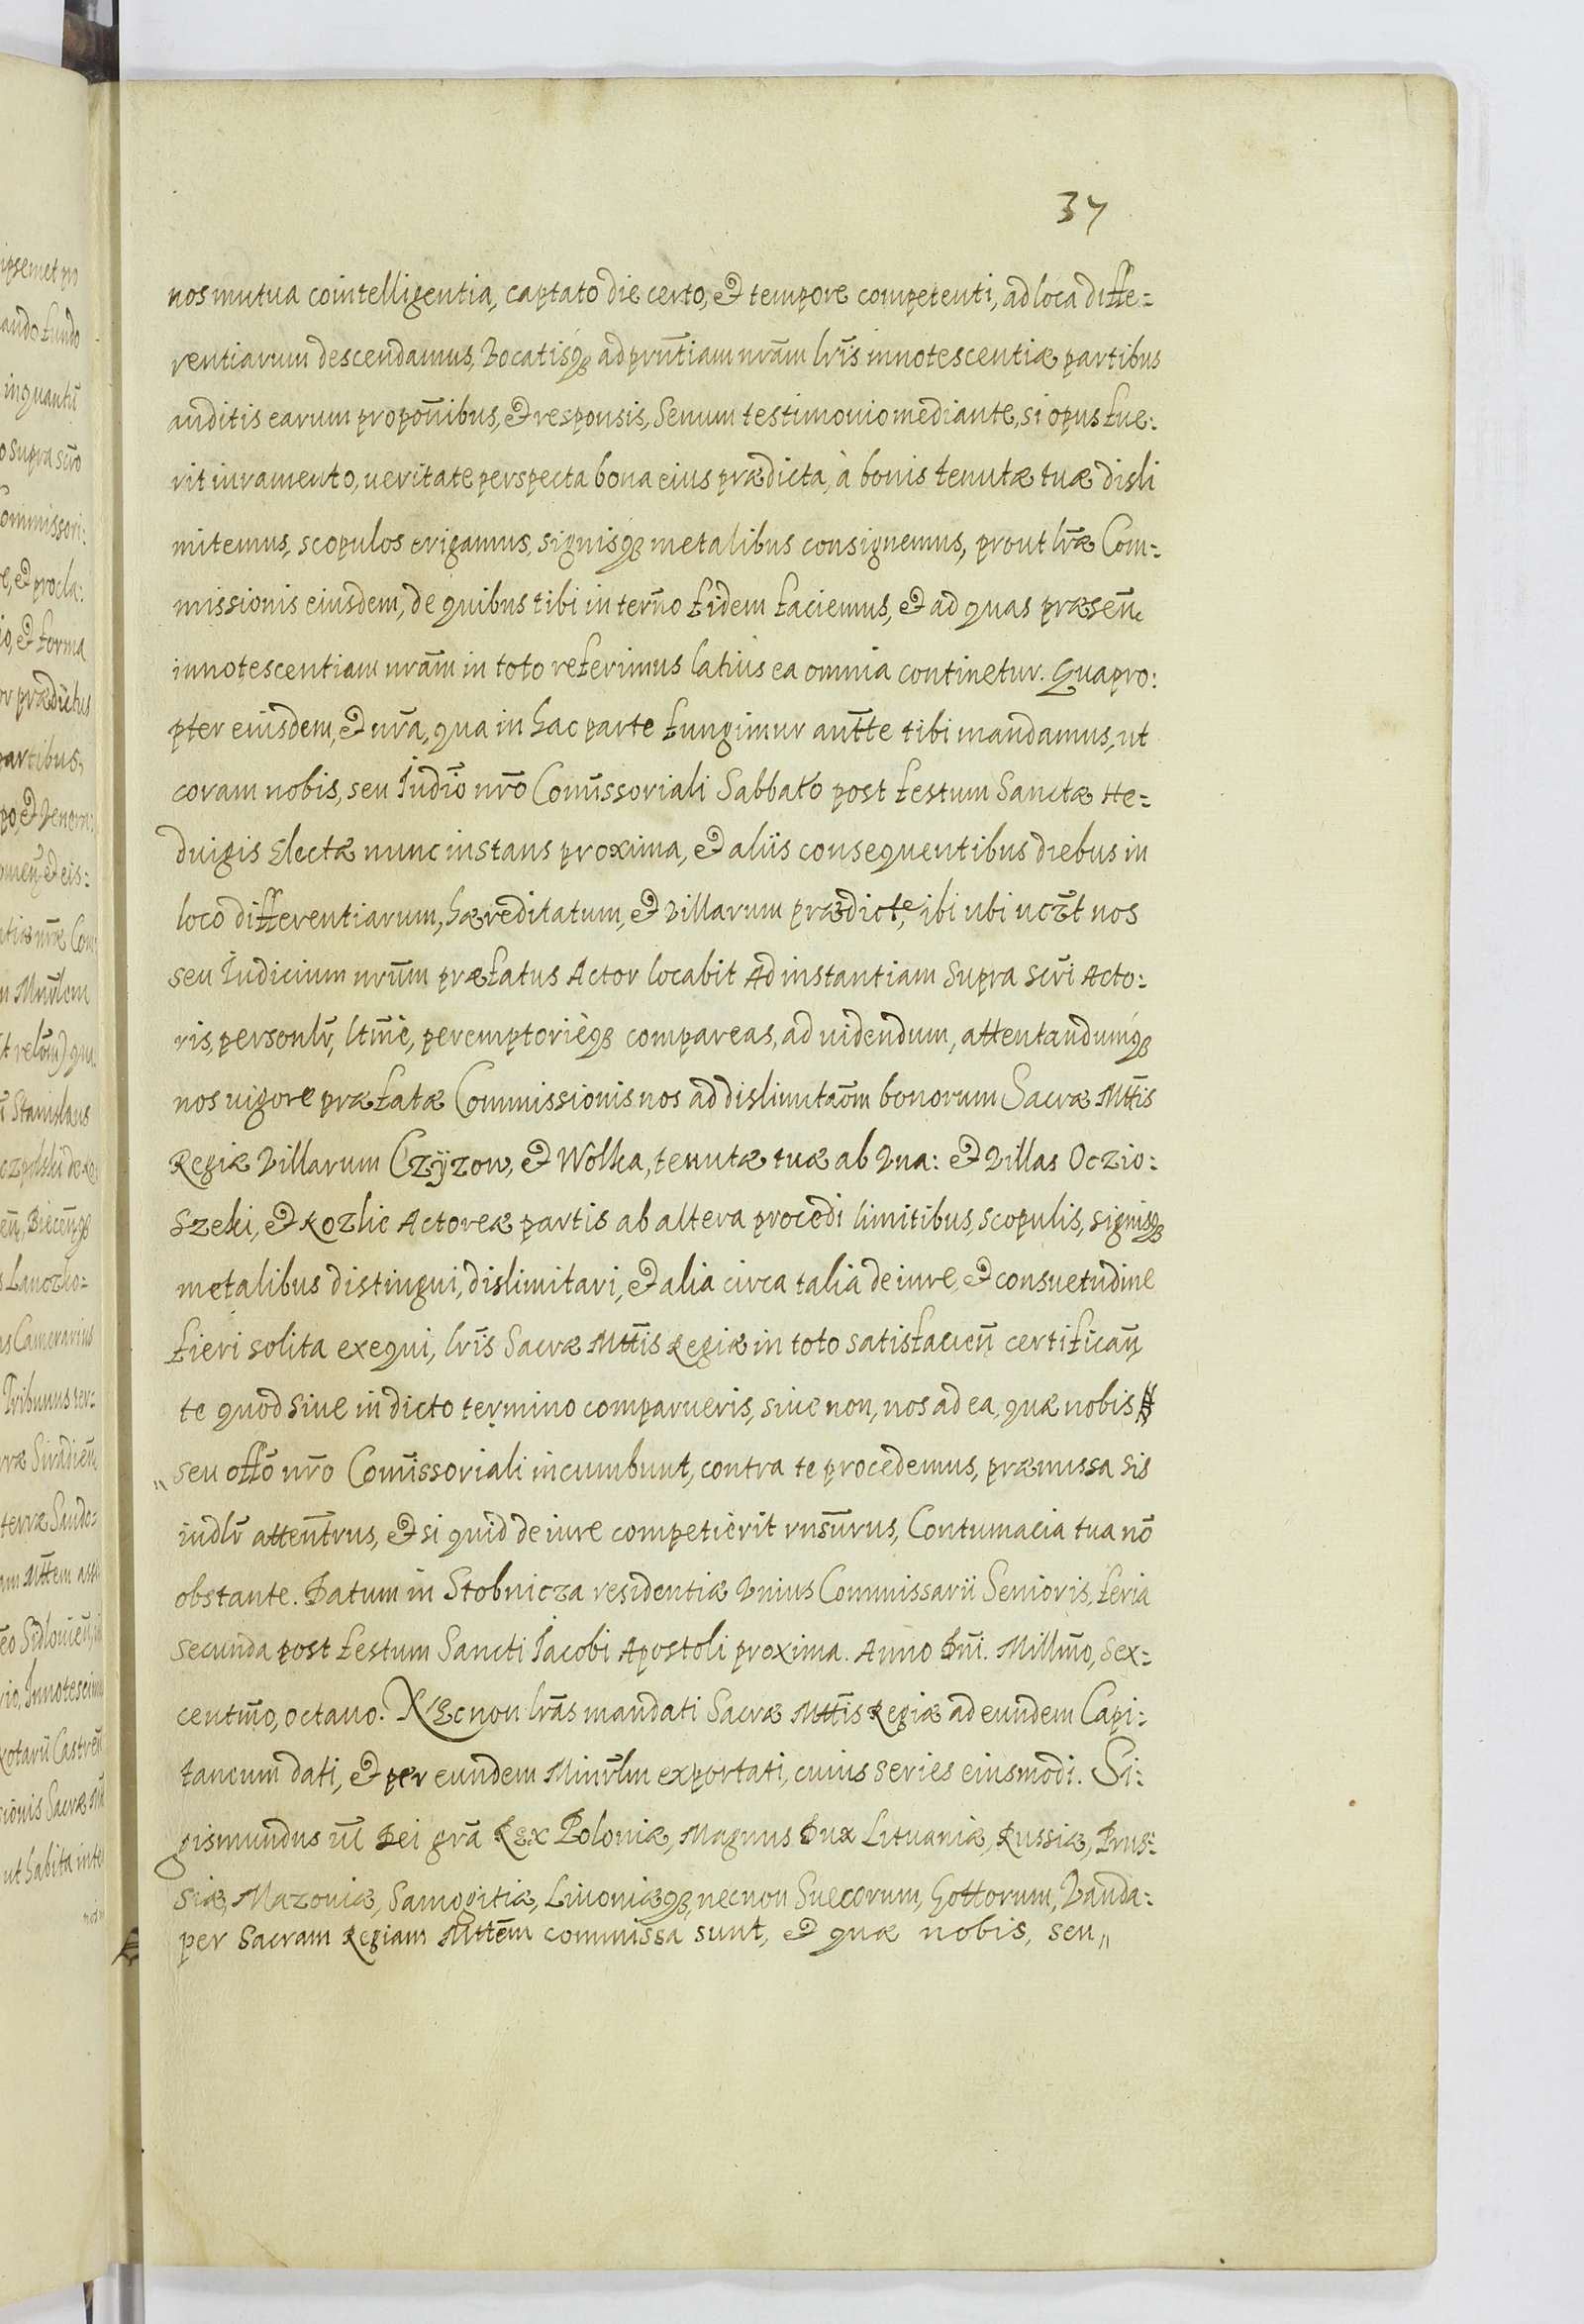 37
nos mutua cointelligentia, captato die certo, et tempore competenti, ad loca diffe:
rentiarum descendamus, Vocatisqꝫ ad pruntiam nram lris innotescentiæ partibus
auditis earum proponibus, et responsis, Senum testimonio mediante, si opus fue:
rit iuramento, ueritate perspecta bona eius prædicta, à bonis tenutæ tuæ disli
mitemus, scopulos erigamus, signisqꝫ metalibus consignemus, prout lræ Com:
missionis eiusdem, de quibus tibi in terno fidem faciemus, et ad quas præsen,
innotescentiam nram in toto referimus latius ea omnia continetur. Quapro:
pter eiusdem, et nra, qua in hac parte fungimur autte tibi mandamus, ut
coram nobis, seu Iudio nro Comissoriali Sabbato post festum Sanctæ He:
duigis Electæ nunc instans proxima, et aliis consequentibus diebus in
loco differentiarum, hæreditatum, et Villarum prædicte, ibi ubi uczt nos
seu Iudicium nrum præfatus Actor locabit Ad instantiam supra scri Acto:
ris, personlr, ltme, peremptorièqꝫ compareas, ad uidendum, attentandumqꝫ
nos uigore præfatæ Commissionis nos ad dislimitaom bonorum Sacræ Mttis
Regiæ Villarum Czÿzow, et Wolka, tenutæ tuæ ab Vna: et Villas Oczio:
szeki, et Kozlie Actoreæ partis ab altera procedi limitibus, scopulis, signisqꝫ
metalibus distingui, dislimitari, et alia circa talia de iure, et consuetudine
fieri solita exequi, lris Sacræ Mttis Regiæ in toto satisfacien, certifican,
te quod siue in dicto termino comparueris, siue non, nos ad ea, quæ nobis
seu offo nro Comissoriali incumbunt, contra te procedemus, præmissa sis
iudlr attentrus, et si quid de iure competierit rnsurus, Contumacia tua no
obstante. Datum in Stobnicza residentiæ Vnius Commissarii Senioris, feria
secunda post festum Sancti Iacobi Apostoli proxima. Anno Dni. Millmo, sex:
centmo, octauo. NEcnon lras mandati Sacræ Mttis Regiæ ad eundem Capi:
taneum dati, et per eundem Minrlm exportati, cuius series eiusmodi. Si:
gismundus III Dei gra REx Poloniæ, Magnus Dux Lituaniæ, Russiæ, Prus:
siæ, Mazouiæ, Samogitiæ, Liuoniæqꝫ, necnon Suecorum, Gottorum, Vanda:
per Sacram Regiam Mttem commissa sunt, et quæ nobis, seu